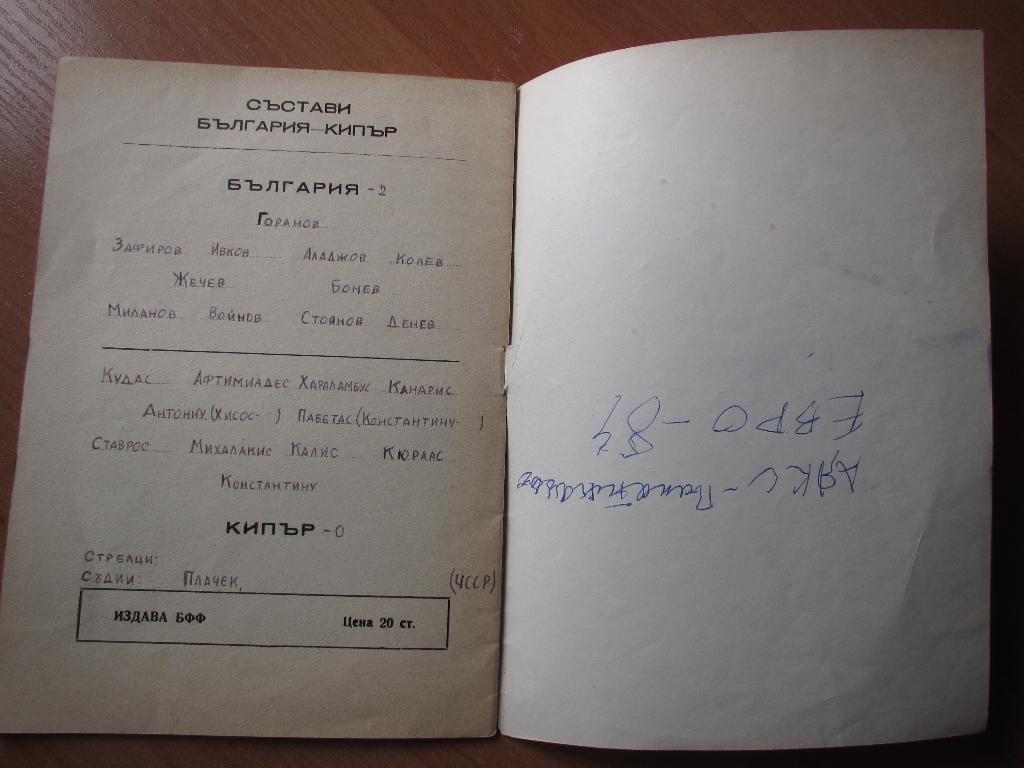 СЪСТАВИ
БЪЛГАРИЯ—КИПЪР
БЪЛГАРИЯ - 2
ГОРАНОВ
ЗАФИРОВ ИВКОВ АЛАДЖОВ КОЛЕВ
ЖЕЧЕВ БОНЕВ
МИЛАНОВ ВОЙНОВ СТОЯНОВ ДЕНЕВ
КУДАС АФТИМИАДЕС ХАРАЛАМБУС КАНАРИС
АНТОНИУ (ХИСОС- ) ПАБЕТАС (КОНСТАНТИНУ- )
СТАВРОС МИХАЛАКИС КАЛИС КЮРААС
КОНСТАНТИНУ
КИПЪР - 0
СТРЕЛЦИ:
СЪДИИ: ПЛАЧЕК, (ЧССР)
ИЗДАВА БФФ Цена 20 ст.
АЯКС -
ЕВРО - 84